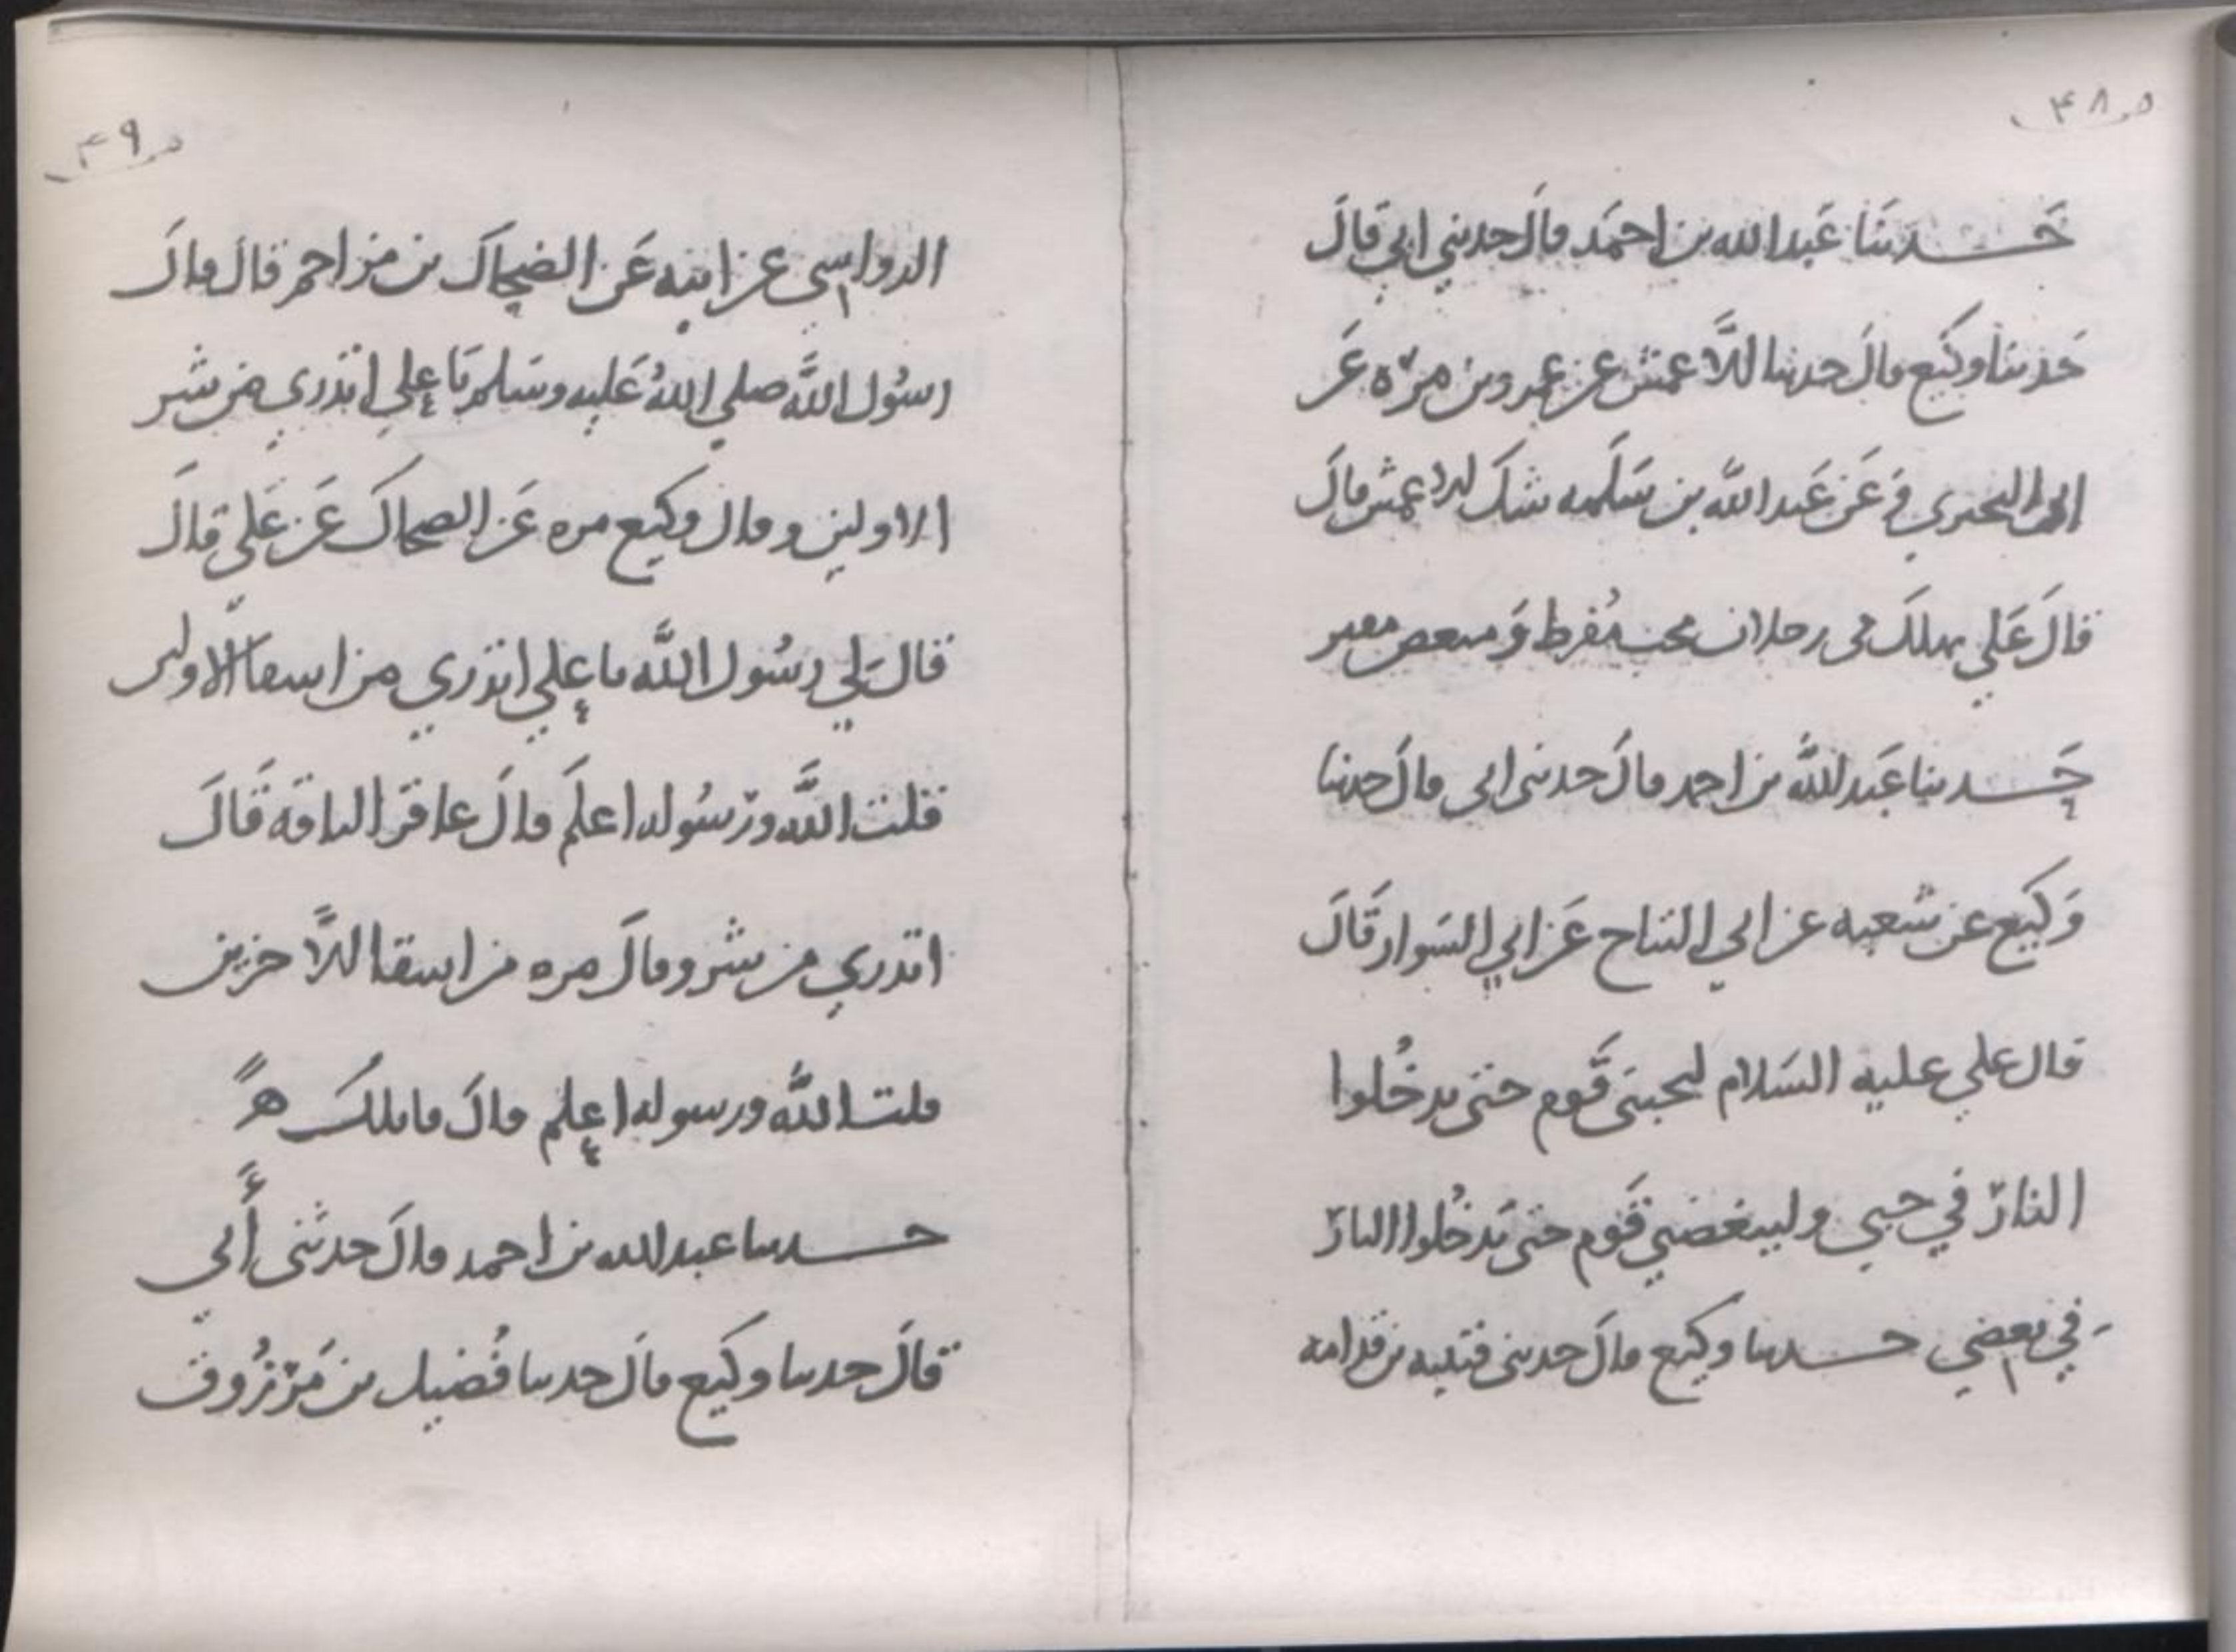 ص ٤٨
حدثنا عبد الله بن احمد قال حدثني ابي قال
حدثنا وكيع قال حدثنا الأعمش عن عمرو بن مرة عن
ابي البختري عن عبد الله بن سلمه شك الاعمش قال
قال علي يهلك في رجلان محب مُفرط وَمبغض مفتر
حدثنا عبد الله بن احمد قال حدثني ابي قال حدثنا
وَكيع عن شعبه عن ابي التياح عَن ابي السَوار قَالَ
قال علي عليه السَلام ليحبني قَوم حتى يدخُلوا
النار في حبي وليبغضني قَوم حتى يَدخُلوا النار
في بغضي حدثنا وكيع قال حدثني قتيبه بن قدامه
ص ٤٩
الرواسي عن ابيه عَن الضحاك بن مزاحم قال قال
رسُول اللَّه صلي اللهُ عَليه وسَلم يَا علي اتدري من شر
الاولين وقال وكيع مره عَن الضحاك عَن عَلي قالَ
قال لي رسُول اللَّه يا علي اتدري من اشقا الاولين
قلت اللَّه ورسُوله اعلَم قالَ عاقر الناقه قَالَ
اتدري من شر وقالَ مره من اشقا الأخرين
قلت اللَّه ورسوله اعلم قالَ قاتلكَ هً
حدثنا عبد الله بن احمد قالَ حدثنى أَبي
قالَ حدثنا وكيع قالَ حدثنا فُضيل بن مَرزُوق